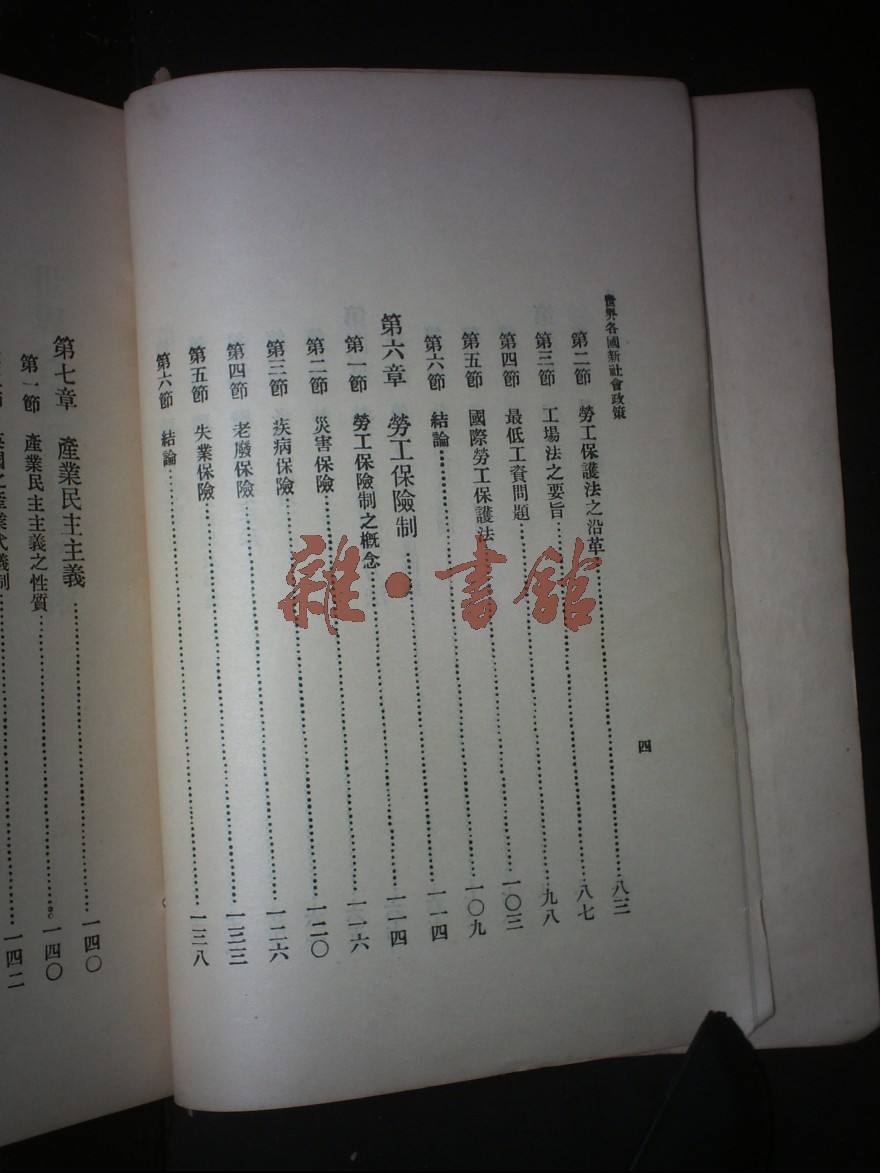 世界各國新社會政策 四
第二節 勞工保護法之沿革……八三
第三節 工場法之要旨……八七
第四節 最低工資問題……九八
第五節 國際勞工保護法……一〇三
第六節 結論……一〇九
第六章 勞工保險制……一一四
第一節 勞工保險制之概念……一一四
第二節 災害保險……一一六
第三節 疾病保險……一二〇
第四節 老廢保險……一二六
第五節 失業保險……一三三
第六節 結論……一三八
第七章 產業民主主義……一四〇
第一節 產業民主主義之性質……一四〇
國之產業代議制……一四二
雜·書館